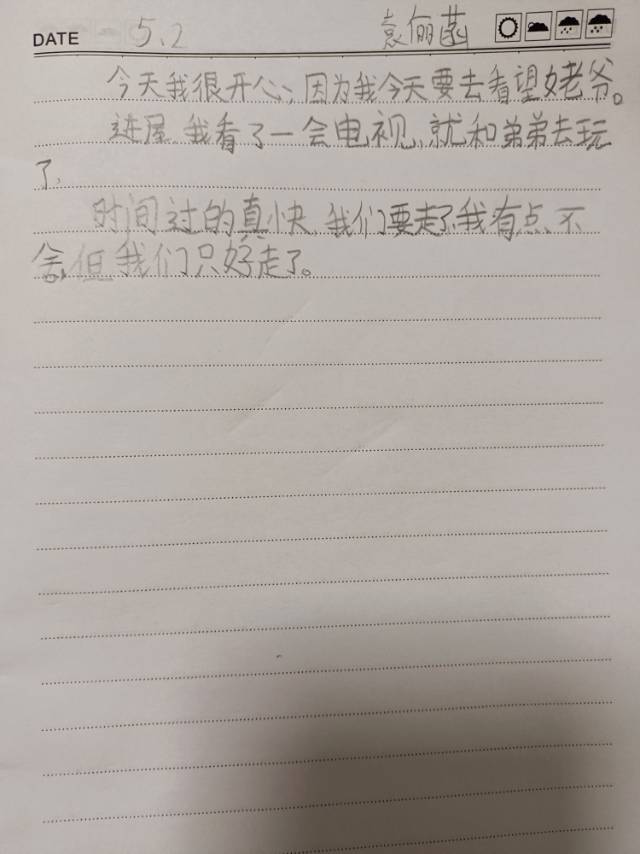 DATE 5.2 袁俪菡
今天我很开心,因为我今天要去看望姥爷。
进屋,我看了一会电视,就和弟弟去玩
了,
时间过的真快,我们要走了,我有点、不
舍,但我们只好走了。